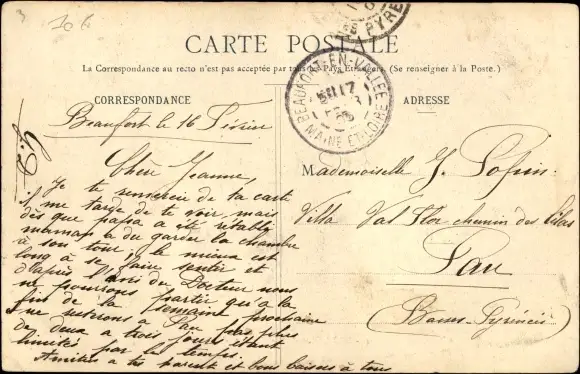 30 c
CARTE POSTALE
La Correspondance au recto n'est pas acceptée par tous les Pays Etrangers. (Se renseigner à la Poste.)
CORRESPONDANCE
ADRESSE
BEAUFORT-EN-VALLEE
MAINE ET LOIRE
PYRE
Beaufort le 16 Février
Chère Jeanne,
Je te remercie de ta carte
il me tarde de te voir mais
dès que papa a été rétabli
maman a du garder la chambre
à son tour, le mieux est
long à se faire sentir et
d'après l'avis du Docteur nous
ne pourrons partir qu'à la
fin de la semaine prochaine
ne resterons à Pau pas plus
de deux a trois jours étant
limités par le temps.
Amitiés a tes parents et bons baisers à tous
Mademoiselle J.
Villa Val Flor chemin des Lilas
Pau
(Basses-Pyrénées)